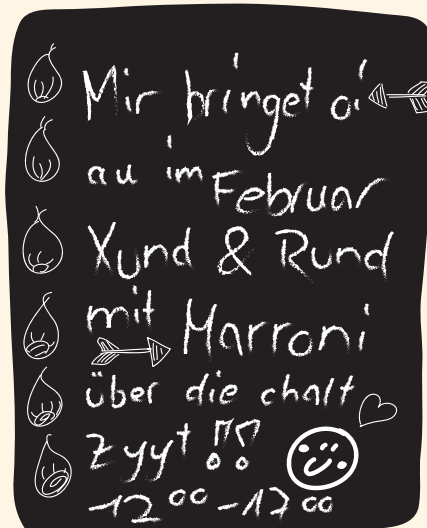 Mir bringet öi
au im Februar
Xund & Rund
mit Marroni
über die chalt
Zyyt !!
-12⁰⁰-17⁰⁰